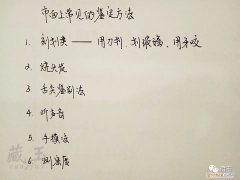 市面上常见的鉴定方法
1. 刻划类 —— 用刀刮、划玻璃、用牙咬
2. 烧头发
3. 舌尖鉴别法
4. 听声音
5. 手摸法
6. 测密度
藏玉